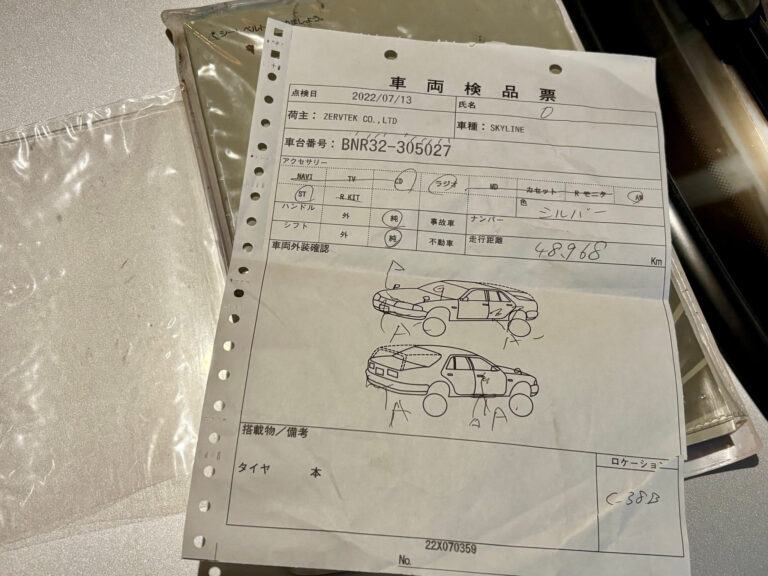 シートベルト
しましょう。
車両検品票
点検日 2022/07/13 氏名
荷主： ZERVTEK CO.,LTD 車種： SKYLINE
車台番号： BNR32-305027
アクセサリー
NAVI TV CD ラジオ MD カセット Rモニタ
ST R KIT 色 シルバー
ハンドル 外 純 事故車 ナンバー
シフト 外 純 不動車 走行距離 48,968 Km
車両外装確認
A
A
A A
搭載物／備考 ロケーション
タイヤ 本 C-38B
22X070359
No.